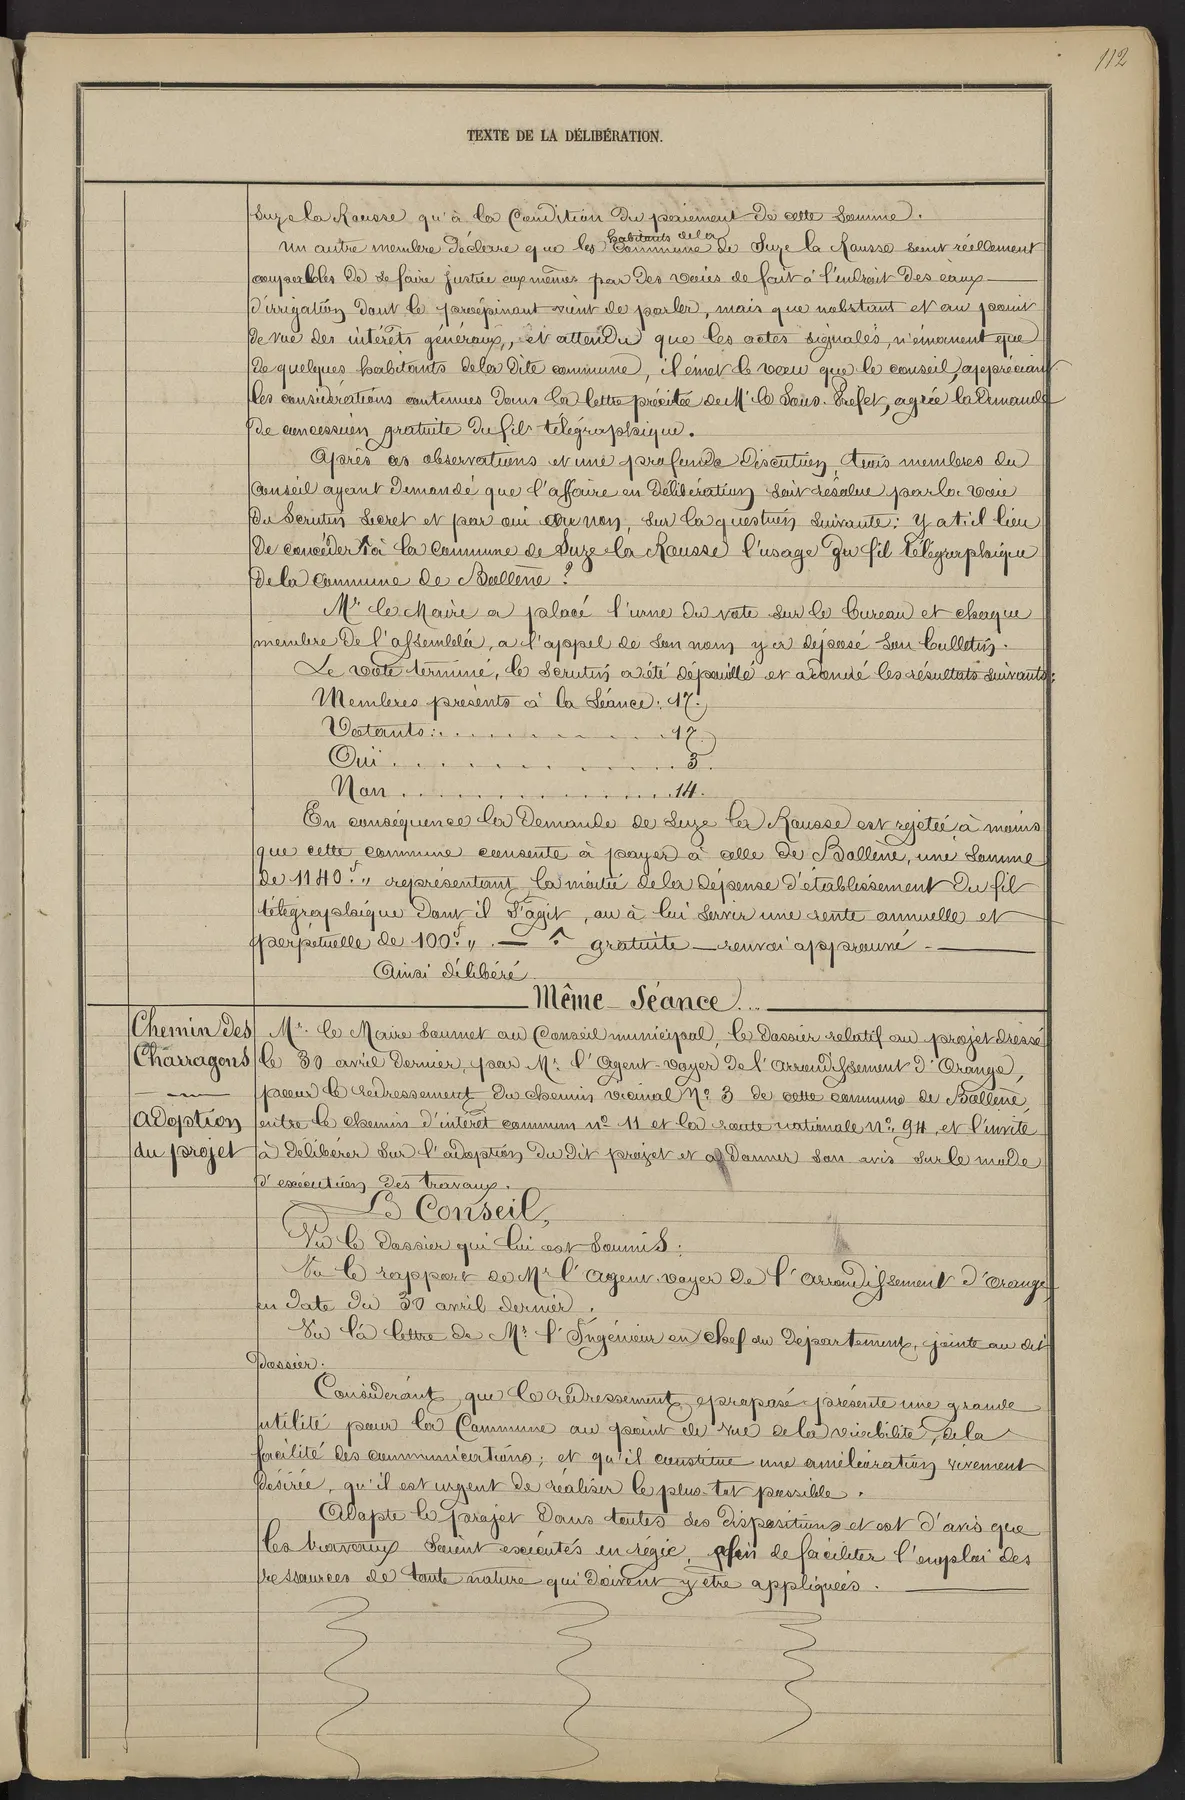 112
TEXTE DE LA DÉLIBÉRATION.
Suze la Rousse qu'à la Condition du paiement de cette Somme.
Un autre membre déclare que les habitants de la Commune de Suze la Rousse sont réellement
coupables de se faire justice eux mêmes par des voies de fait à l'endroit des eaux
d'irrigation dont le préopinant vient de parler, mais que nobstant et au point
de vue des intérêts généraux, et attendu que les actes signalés, n'émanent que
de quelques habitants de la dite commune, il émet le vœu que le conseil, appréciant
les considérations contenues dans la lettre précitée de Mr le Sous-Préfet, agrée la demande
de concession gratuite du fil télégraphique.
Après ces observations et une profonde discution, trois membres du
Conseil ayant demandé que l'affaire en délibération soit résolue par la voie
du Scrutin Secret et par oui ou non, sur la question suivante: Y a t'il lieu
de concéder à la Commune de Suze la Rousse l'usage du fil télégraphique
de la Commune de Bollène?
Mr le Maire a placé l'urne du vote sur le bureau et chaque
membre de l'assemblée, a l'appel de son nom y a déposé son bulletin.
Le vote terminé, le scrutin a été dépouillé et a donné les résultats suivants:
Membres présents à la Séance: 17.
Votants: . . . . . . . . . . . 17.
Oui . . . . . . . . . . . . . 3.
Non . . . . . . . . . . . . . 14.
En conséquence la demande de Suze la Rousse est rejetée à moins
que cette commune consente à payer à celle de Bollène, une somme
de 1140 f. " représentant la moitié de la dépense d'établissement du fil
télégraphique dont il s'agit, ou à lui servir une rente annuelle et
perpétuelle de 100 f. " . — ^ gratuite — renvoi approuvé. —
Ainsi délibéré
Même Séance...
Chemin des
Charragons
—
Adoption
du projet
Mr. le Maire soumet au Conseil municipal, le dossier relatif au projet dressé
le 30 avril dernier, par Mr. l'Agent-voyer de l'arrondissement d'Orange,
pour le redressement du chemin vicinal No. 3 de cette commune de Bollène,
entre le chemin d'intérêt commun no 11 et la route nationale no. 94, et l'invite
à délibérer sur l'adoption du dit projet et à donner son avis sur le mode
d'exécution des travaux.
Le Conseil,
Vu le dossier qui lui est soumis:
Vu le rapport de Mr l'agent-voyer de l'arrondissement d'Orange
en date du 30 avril dernier.
Vu la lettre de Mr. l'Ingénieur en chef du Département, jointe au dit
dossier.
Considérant que le redressement proposé présente une grande
utilité pour la Commune au point de vue de la viabilité, de la
facilité des communications; et qu'il constitue une amélioration vivement
désirée, qu'il est urgent de réaliser le plus tôt possible.
Adopte le projet dans toutes ses dispositions et est d'avis que
les travaux soient exécutés en régie, afin de faciliter l'emploi des
ressources de toute nature qui doivent y être appliquées.